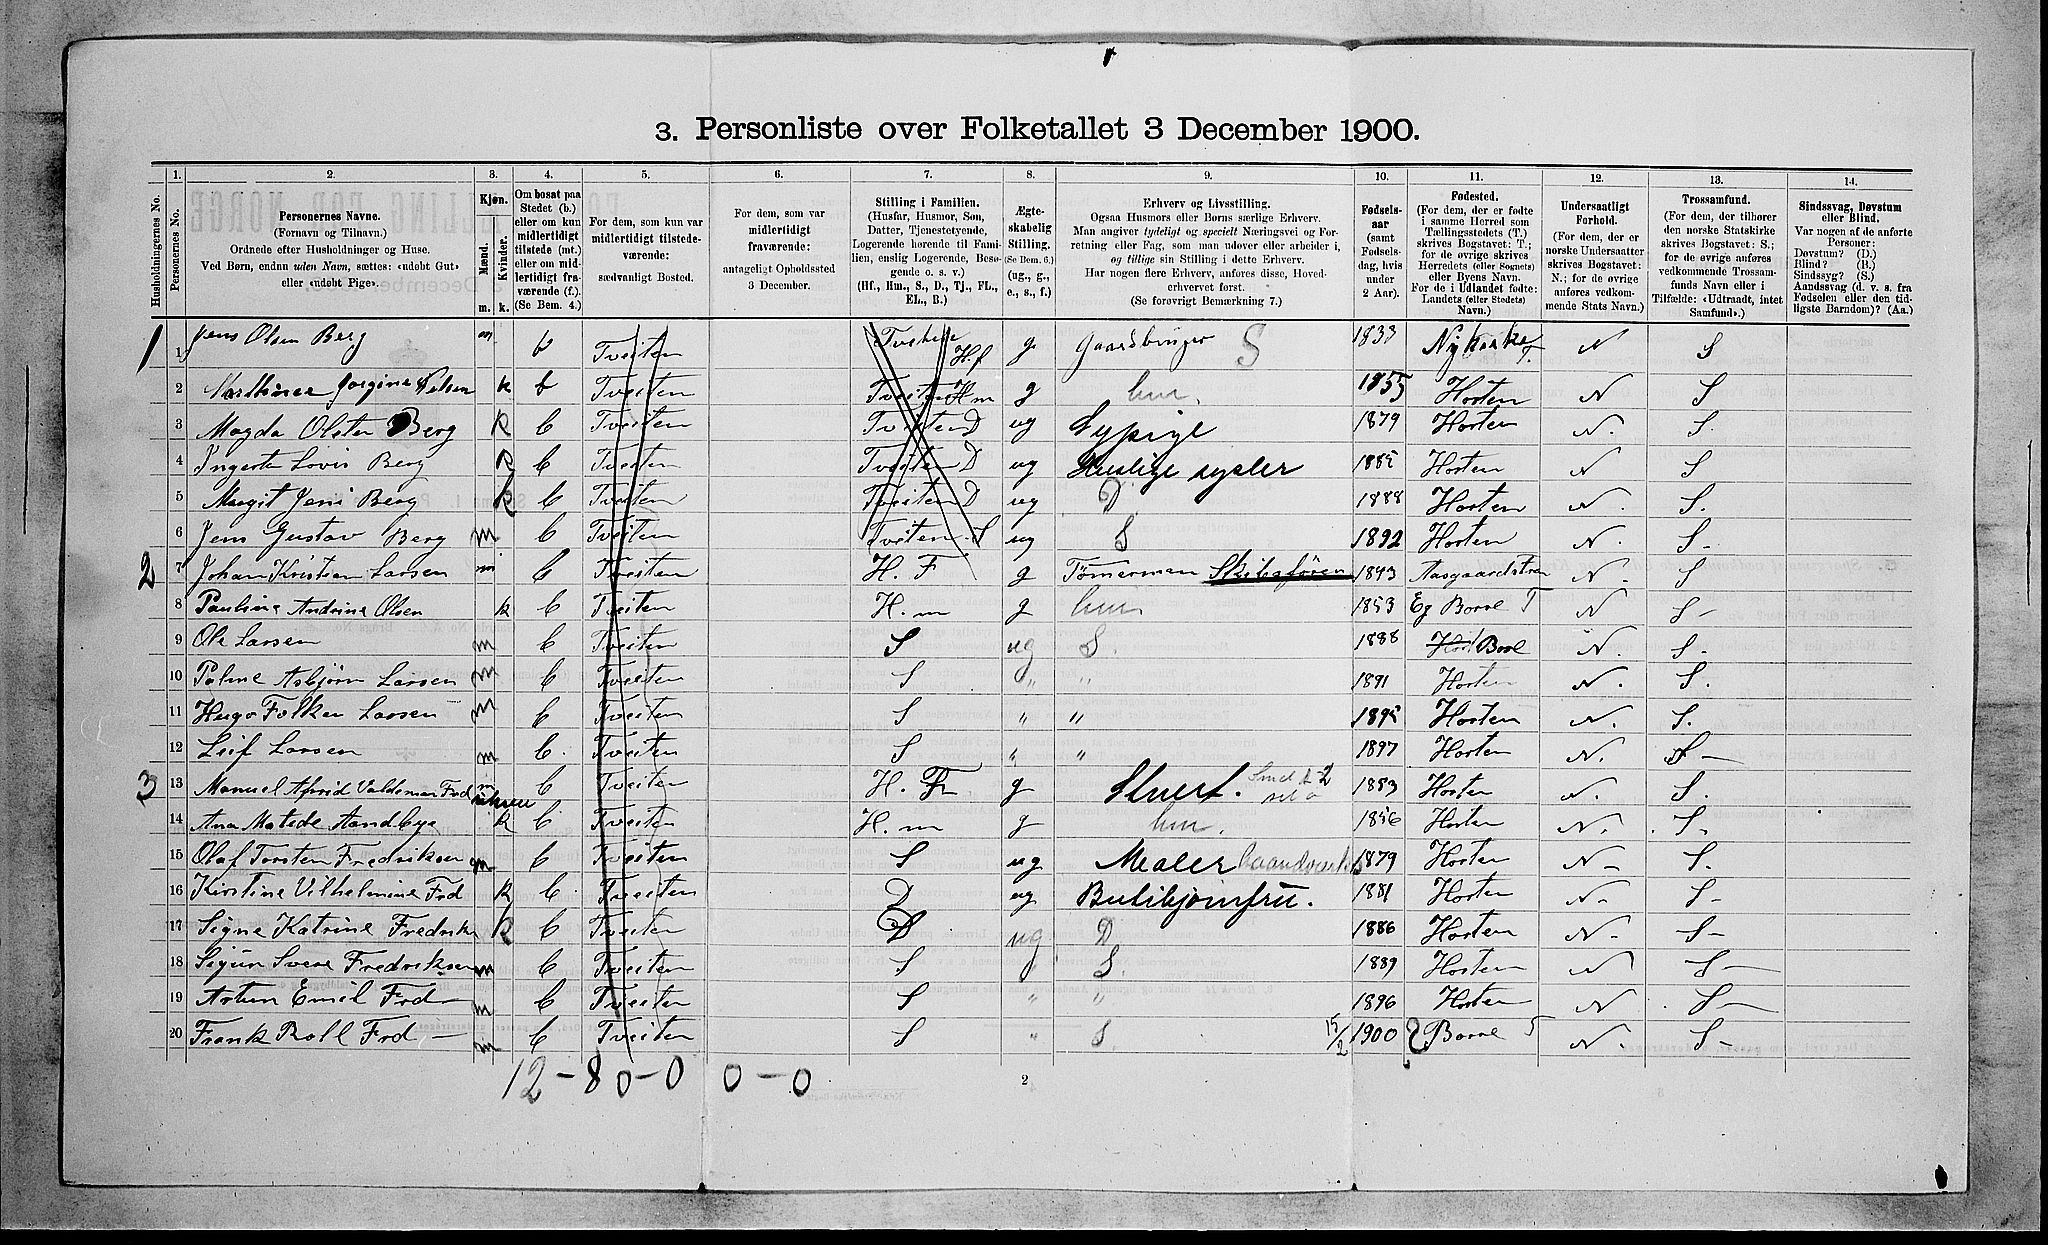 3. Personliste over Folketallet 3 December 1900.
Husholdningernes No.
1. Personernes No.
2. Personernes Navne. (Fornavn og Tilnavn.) Ordnede efter Husholdninger og Huse. Ved Børn, endnu uden Navn, sættes: «udøbt Gut» eller «udøbt Pige».
3. Kjøn. Mænd. m. Kvinder. k.
4. Om bosat paa Stedet (b.) eller om kun midlertidigt tilstede (mt.) eller om midlertidigt fraværende (f.). (Se Bem. 4.)
5. For dem, som kun var midlertidigt tilstedeværende: sædvanligt Bosted.
6. For dem, som var midlertidigt fraværende: antageligt Opholdssted 3 December.
7. Stilling i Familien. (Husfar, Husmor, Søn, Datter, Tjenestetyende, Logerende hørende til Familien, enslig Logerende, Besøgende o. s. v.) (Hf., Hm., S., D., Tj., FL., EL., B.)
8. Ægteskabelig Stilling. (Se Bem. 6.) (ug., g., e., s., f.)
9. Erhverv og Livsstilling. Ogsaa Husmors eller Børns særlige Erhverv. Man angiver tydeligt og specielt Næringsvei og Forretning eller Fag, som man udøver eller arbeider i, og tillige sin Stilling i dette Erhverv. Har nogen flere Erhverv, anføres disse, Hovederhvervet først. (Se forøvrigt Bemærkning 7.)
10. Fødselsaar (samt Fødselsdag, hvis under 2 Aar).
11. Fødested. (For dem, der er fødte i samme Herred som Tællingsstedets (T.) skrives Bogstavet: T.; for de øvrige skrives Herredets (eller Sognets) eller Byens Navn. For de i Udlandet fødte: Landets (eller Stedets) Navn.)
12. Undersaatligt Forhold. (For dem, der er norske Undersaatter skrives Bogstavet: N.; for de øvrige anføres vedkommende Stats Navn.)
13. Trossamfund. (For dem, der tilhører den norske Statskirke skrives Bogstavet: S.; for de øvrige anføres vedkommende Trossamfunds Navn eller i Tilfælde: «Udtraadt, intet Samfund».)
14. Sindssvag, Døvstum eller Blind. Var nogen af de anførte Personer: Døvstum? (D.) Blind? (B.) Sindssyg? (S.) Aandssvag (d. v. s. fra Fødselen eller den tidligste Barndom)? (Aa.)
1 1 Jens Olsen Berg m b Tveiten Tveiten Hf g Gaardbruger S 1833 Nykirke T. N S
2 Jorgine Nilsen k b Tveiten Tveiten Hm g hm. 1855 Horten N S
3 Magda Olsen Berg k b Tveiten Tveiten D ug Sypige 1879 Horten N. S.
4 Lovis Berg k b Tveiten Tveiten D ug Huslige sysler 1885 Horten N S
5 Margit Jeni Berg k b Tveiten Tveiten D ug D. 1888 Horten N. S.
6 Jens Gustav Berg m b Tveiten Tveiten S ug S 1892 Horten N. S-
2 7 Johan Kristian Larsen m b Tveiten H. F g Tömerman Skibsfören 1843 Aasgaardstran N. S
8 Pauline Andrine Olsen k b Tveiten H. m g hm 1853 Eg Borre T N S-
9 Ole Larsen m b Tveiten S ug S. 1888 Hort Borre N. S.
10 Palme Asbjørn Larsen m b Tveiten S " " 1891 Horten N. S.
11 Hugo Folker Larsen m b Tveiten S " " 1895 Horten N. S.
12 Leif Larsen m b. Tveiten S " " 1897 Horten N. S-
3 13 Manuel Afrid Valdemar Fredriksen m b Tveiten H. F g Stuert. 1853 Horten N. S.
14 Ana Matede Aandbye k b Tveiten H. m g hm. 1856 Horten N. S.
15 Olaf Torsten Fredriksen m b Tveiten S ug Maler haandverks 1879 Horten N- S.
16 Kirstine Vilhelmine Frd k b. Tveiten D ug Butikjomfru. 1881 Horten N- S-
17 Signe Katrine Fredrik k b Tveiten D ug D. 1886 Horten N- S-
18 Sigun Svere Fredriksen m b Tveiten S S. 1889 Horten N S-
19 Artur Emil Frd- m b Tveiten S " " 1896 Horten N S-
20 Frank Roll Frd - m b Tveiten S " S. 15/2 1900 Borre N. S-
12-8 0-0 0-0
2